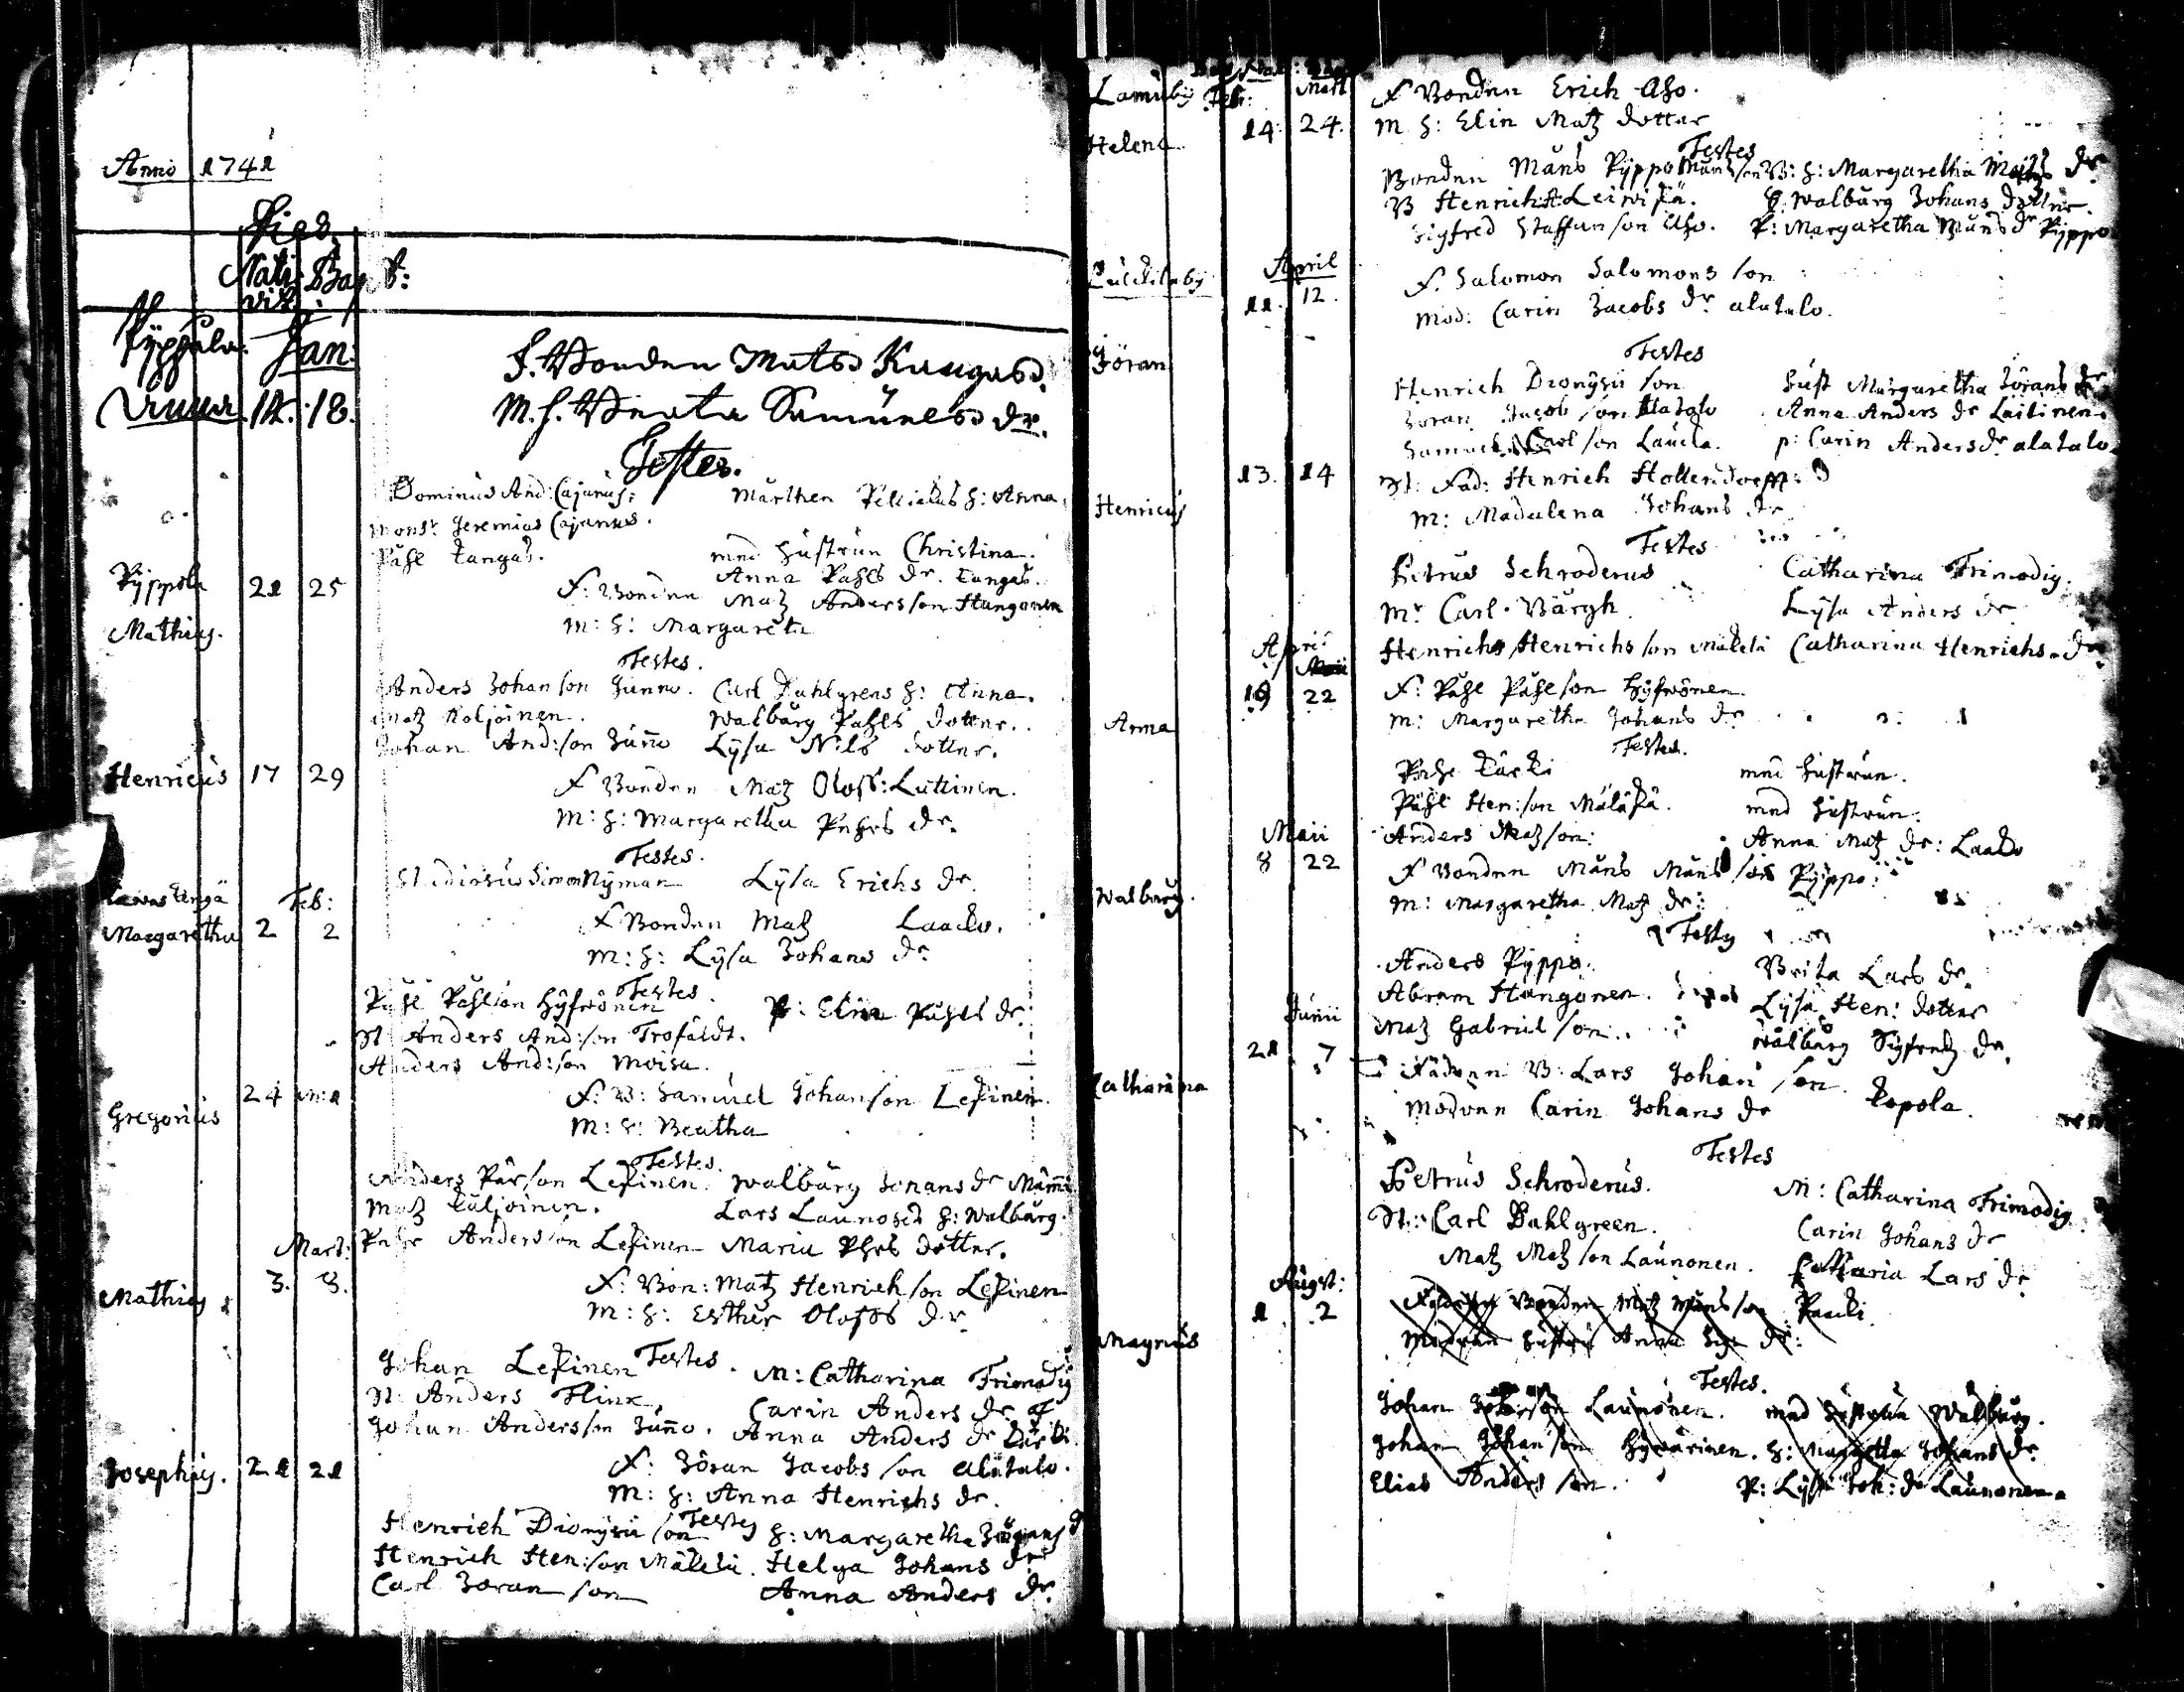 Anno 1741
Dies
Nati Bapt:
vit
Pyppola. Jan: F. Bonden Mats Kangas.
14. 18. M. h. Beata Samuels dr.
Testes.
Dominus And: Cajanus: H: Anna
Mons:r Jeremias Cajanus.
Påhl Kangas. med hustrun Christina.
Anna Påhls dr. Kangas.
Pyppola 21 25 F: Bonden Matz Andersson Hangonen
Mathias. M: h: Margareta
Testes.
Anders Johansson Junno. Carl Dahlgrens h: Anna.
Matz Koljoinen. Walbürg Påhls dotter.
Johan And:son Junno Lysa Nils dotter.
Henricus 17 29 F Bonden Matz Oloff: Luttinen.
M: h: Margaretha Pehrs dr.
Testes.
Studiosus Simon Nyman Lysa Erichs dr.
Feb:
Margaretha 2 2 F Bonden Matz Laacko.
M: h: Lysa Johans dr
Testes.
Påhl Påhlson Hyfwönen P: Elin Påhls dr.
N Anders And:son Trofaldt.
Anders And:son Moisa.
Gregorius 24 F: B: Samuel Johanson Leskinen.
M: h: Beatha
Testes.
Anders Pärson Leskinen. Walbürg Johans dr
Matz Käljoinen. Lars Launoses h: Walbürg.
Pehr Andersson Leskinen Maria Phrs dotter.
Mart:
Mathias 3. 3. F: Bon: Matz Henrichson Leskinen
M: h: Esther Olofss dr
Testes.
Johan Leskinen M: Catharina Frimodig
N: Anders Flink Carin Anders dr
Johan Andersson Junno. Anna Anders dr
Josephus. 21 21 F: Jöran Jacobs son Alatalo.
M: h: Anna Henrichs dr.
Testes
Henrich Dionysii son h: Margaretha Jörans d
Henrich Hen:son Mäkelä. Helga Johans dr
Carl Joran son Anna Anders dr.
Lamuby Feb: Mart F Bonden Erich Aho.
Helena 14. 24. M h: Elin Matz dotter
Testes
Bonden Måns Pyppo B: h: Margaretha Matz dr
B Henrich Leiwiskä. h. Walbürg Johans dotter.
Sigfred Staffanson Aho. P: Margaretha Måns dr Pyppo
April
11. 12. F. Salomon Salomons son
Mod: Carin Jacobs dr alatalo.
Jöran
Testes
Henrich Dionysii son Hust Margaretha Jörans dr
Joran Jacob son Alatalo Anna Anders dr Laitinen.
Samuel Carl son Laucka. p: Carin Anders dr alatalo
Henricus 13. 14 N: Fad: Henrich Hollendorff:
M: Madalena Johans dr
Testes
Petrus Schroderus Catharina Frimodig.
Mr Carl Bärgh. Lysa Anders dr
Henrichs Henrichs son Mäkelä Catharina Henrichs dr
April
Anna 19 22 F: Påhl Påhlson Hyfwönen
M: Margaretha Johans dr
Testes.
Påhl Kärki med hustrun.
Påhl Hen:son Mäläskä. med hustrun.
Maii Anders Matzson: Anna Matz dr: Laacko
Walburg. 8 22 F Bonden Måns Måns son Pyppo:
M: Margaretha Matz dr:
Testes
Anders Pyppo. Brita Lars dr.
Abram Hangonen. Lysa Hen: dotter
Junii Matz Gabriel son. Walbürg Sigfredz dr.
Catharina 21 7 Fadren B: Lars Johan son
Modren Carin Johans dr Kopola.
Testes
Petrus Schroderus. M: Catharina Frimodig
N: Carl Dahlgreen. Carin Johans dr
Matz Matz son Launonen. Catharia Lars dr
Augst:
Magnus 1 2 Fadren Bonden Matz Måns son Paacki
Modren Hustru Anna
Testes.
Johan Launonen. med hustrun Walbürg.
Johan Johan son Hywärinen. h: Johans dr.
Elias Anders son. P: Lysa Joh: dr Launonen.